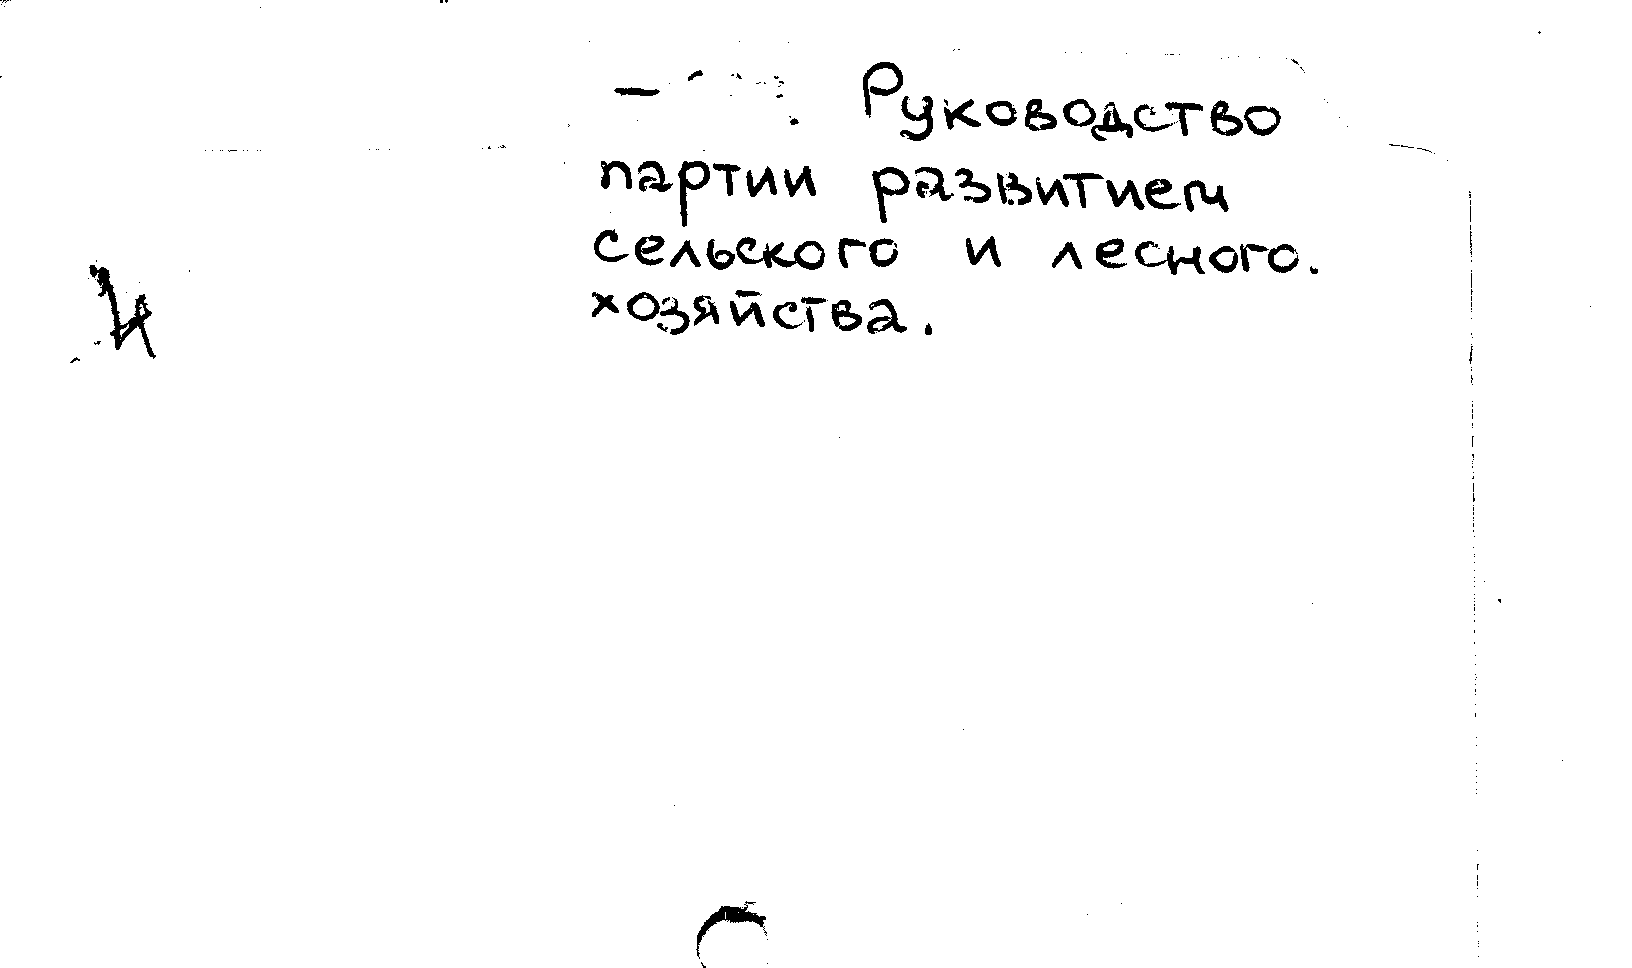 — . Руководство
партии развитием
сельского и лесного.
хозяйства.
И